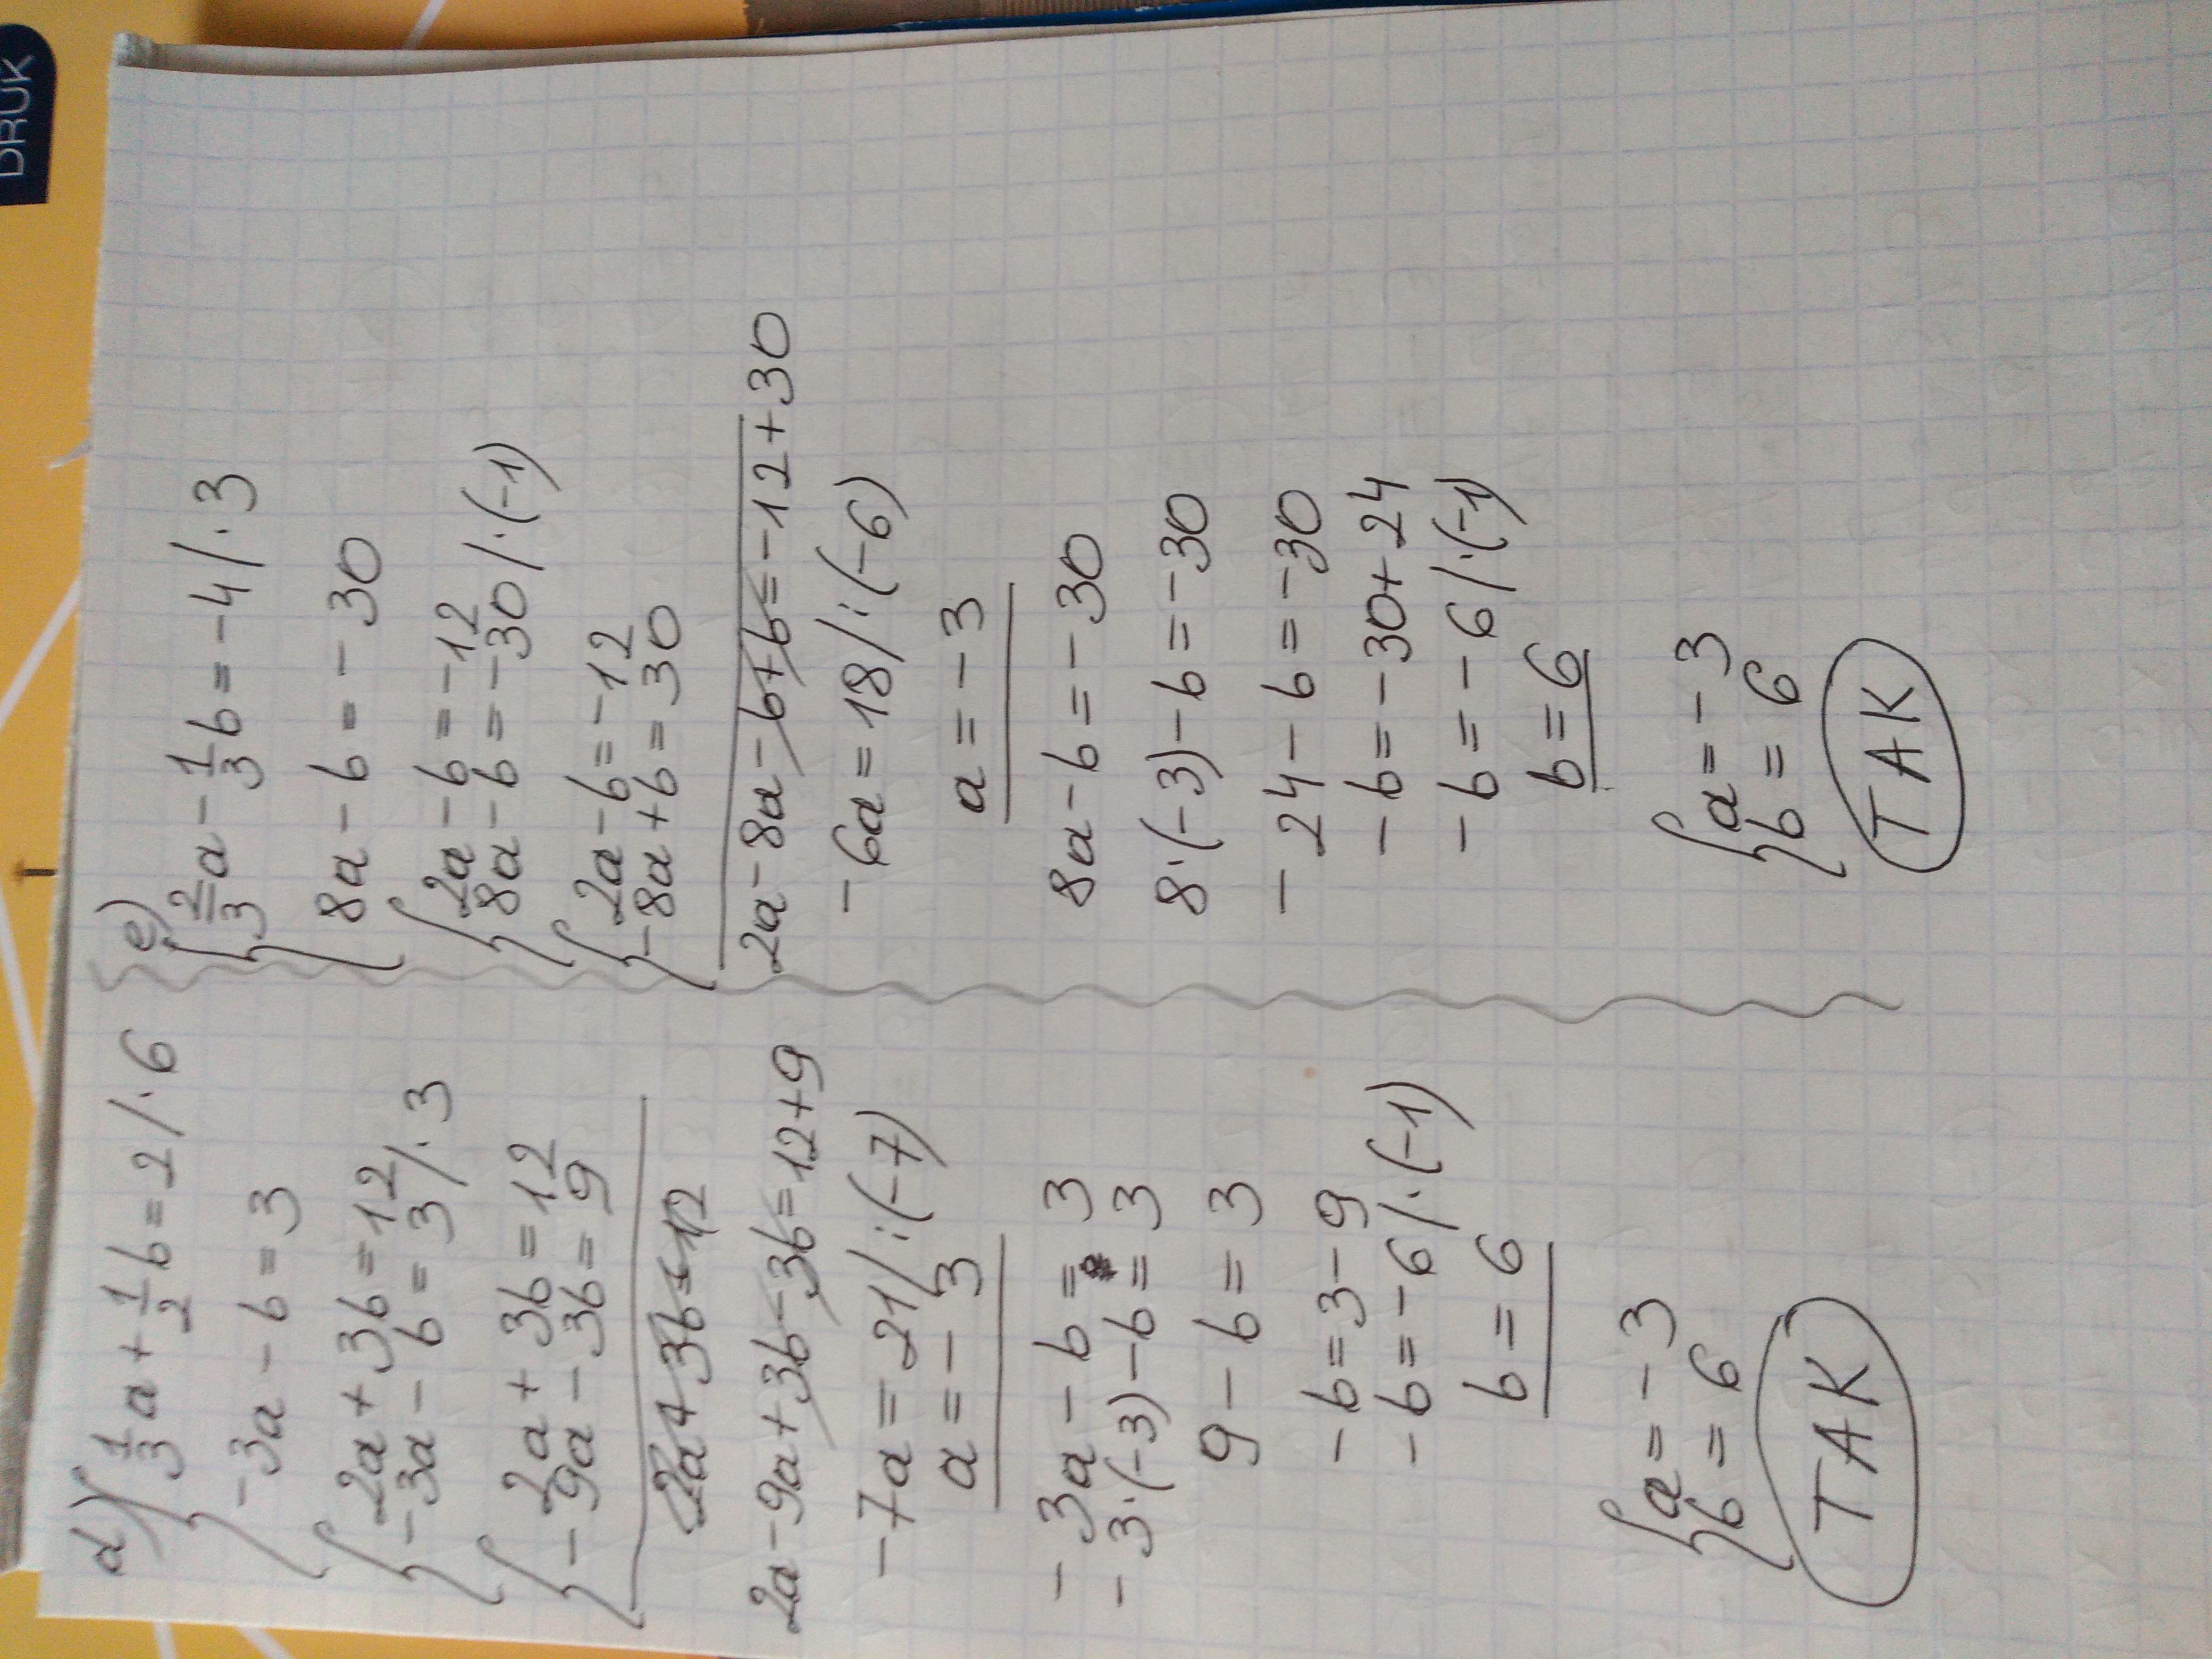 DRUK
d) { 1/3 a + 1/2 b = 2 / · 6
-3a - b = 3
{ 2a + 3b = 12
-3a - b = 3 / · 3
{ 2a + 3b = 12
-9a - 3b = 9
2a + 3b = 12
2a - 9a + 3b - 3b = 12 + 9
-7a = 21 / : (-7)
a = -3
-3a - b = 3
-3 · (-3) - b = 3
9 - b = 3
-b = 3 - 9
-b = -6 / · (-1)
b = 6
{ a = -3
b = 6
TAK
e)
{ 2/3 a - 1/3 b = -4 / · 3
8a - b = -30
{ 2a - b = -12
8a - b = -30 / · (-1)
{ 2a - b = -12
-8a + b = 30
2a - 8a - b + b = -12 + 30
-6a = 18 / : (-6)
a = -3
8a - b = -30
8 · (-3) - b = -30
-24 - b = -30
-b = -30 + 24
-b = -6 / · (-1)
b = 6
{ a = -3
b = 6
TAK